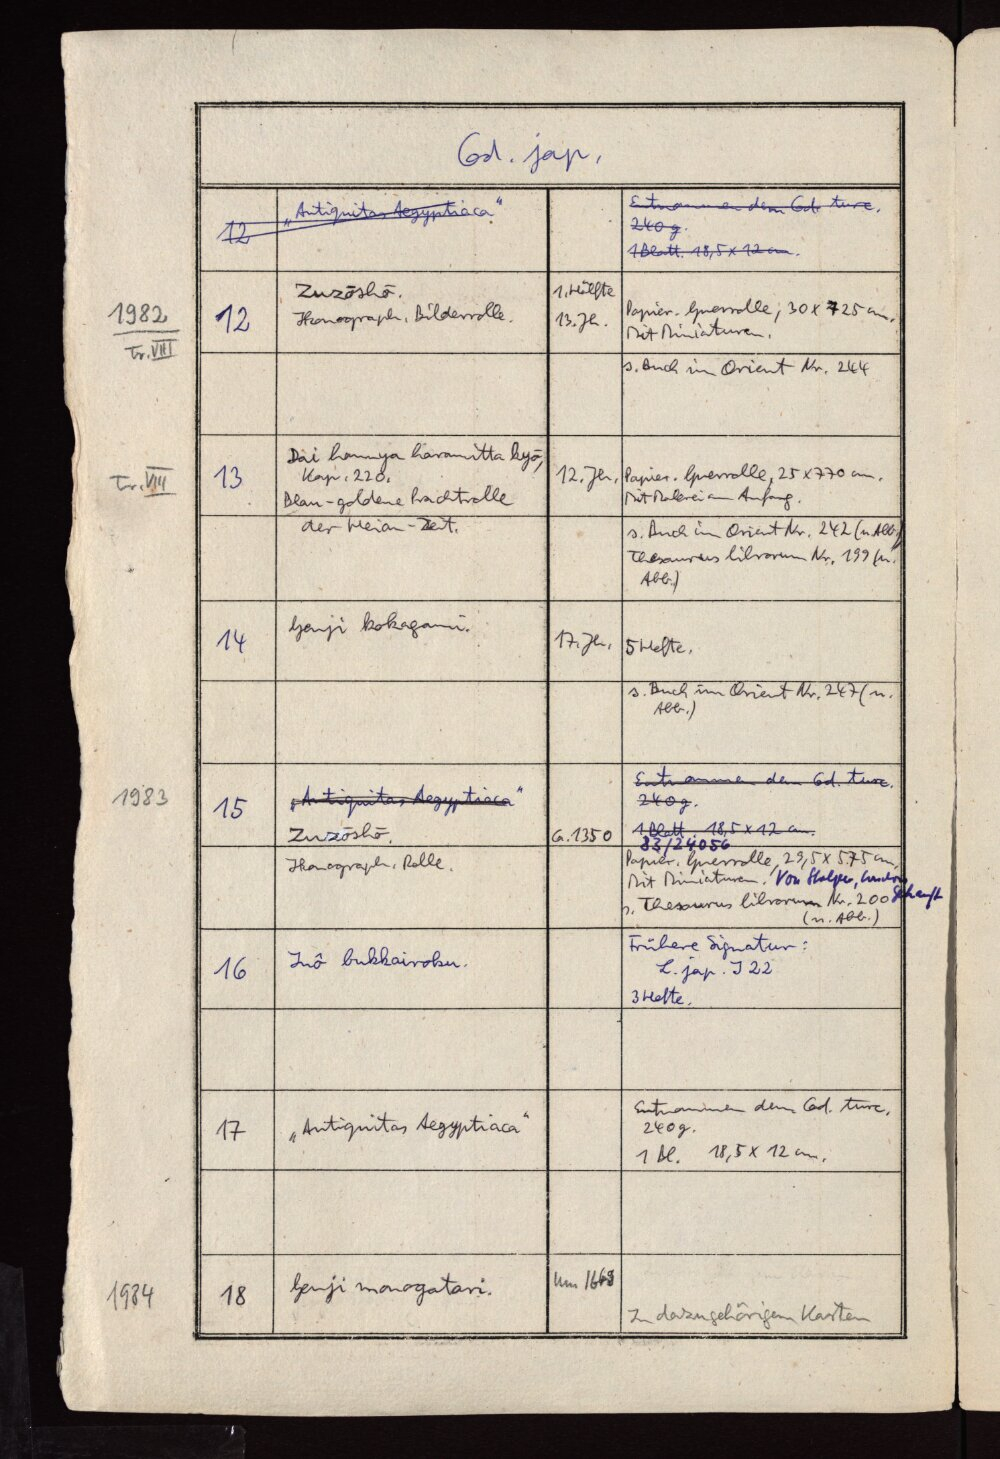 Cod. jap.
12 „Antiquitas Aegyptiaca“ Entnommen dem Cod. turc.
240 g.
1 Blatt. 18,5 x 12 cm.
1982
Tr. VIII
12 Zuzōshō. 1. Hälfte
Ikonograph. Bilderrolle. 13. Jh. Papier. Querrolle, 30 x 725 cm.
Mit Miniaturen.
s. Buch im Orient Nr. 244
Tr. VIII
13 Dai hannya haramitta kyō,
Kap. 220. 12. Jh. Papier. Querrolle, 25 x 770 cm.
Blau-goldene Prachtrolle Mit Malerei am Anfang.
der Heian-Zeit. s. Buch im Orient Nr. 242 (m. Abb.)
Thesaurus librorum Nr. 199 (m.
Abb.)
14 Genji kokagami. 17. Jh. 5 Hefte.
s. Buch im Orient Nr. 247 (m.
Abb.)
1983
15 „Antiquitas Aegyptiaca“ Entnommen dem Cod. turc.
240 g.
Zuzōshō. Ca. 1350 1 Blatt. 18,5 x 12 cm.
83/24056
Ikonograph. Rolle. Papier. Querrolle, 29,5 x 575 cm,
Mit Miniaturen. Von London
s. Thesaurus librorum Nr. 200 gekauft
(m. Abb.)
16 Inō bukkairoku. Frühere Signatur:
L. jap. I 22
3 Hefte.
17 „Antiquitas Aegyptiaca“ Entnommen dem Cod. turc.
240 g.
1 Bl. 18,5 x 12 cm.
1984
18 Genji monogatari. Um
In dazugehörigem Kasten